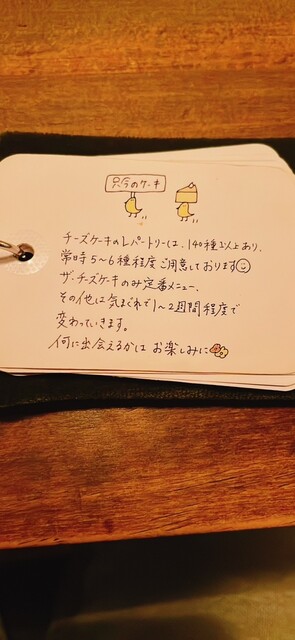 只今のケーキ
チーズケーキのレパートリーは、140種以上あり、
常時5〜6種程度ご用意しております
ザ・チーズケーキのみ定番メニュー、
その他は気まぐれで1〜2週間程度で
変わっていきます。
何に出会えるかは お楽しみに